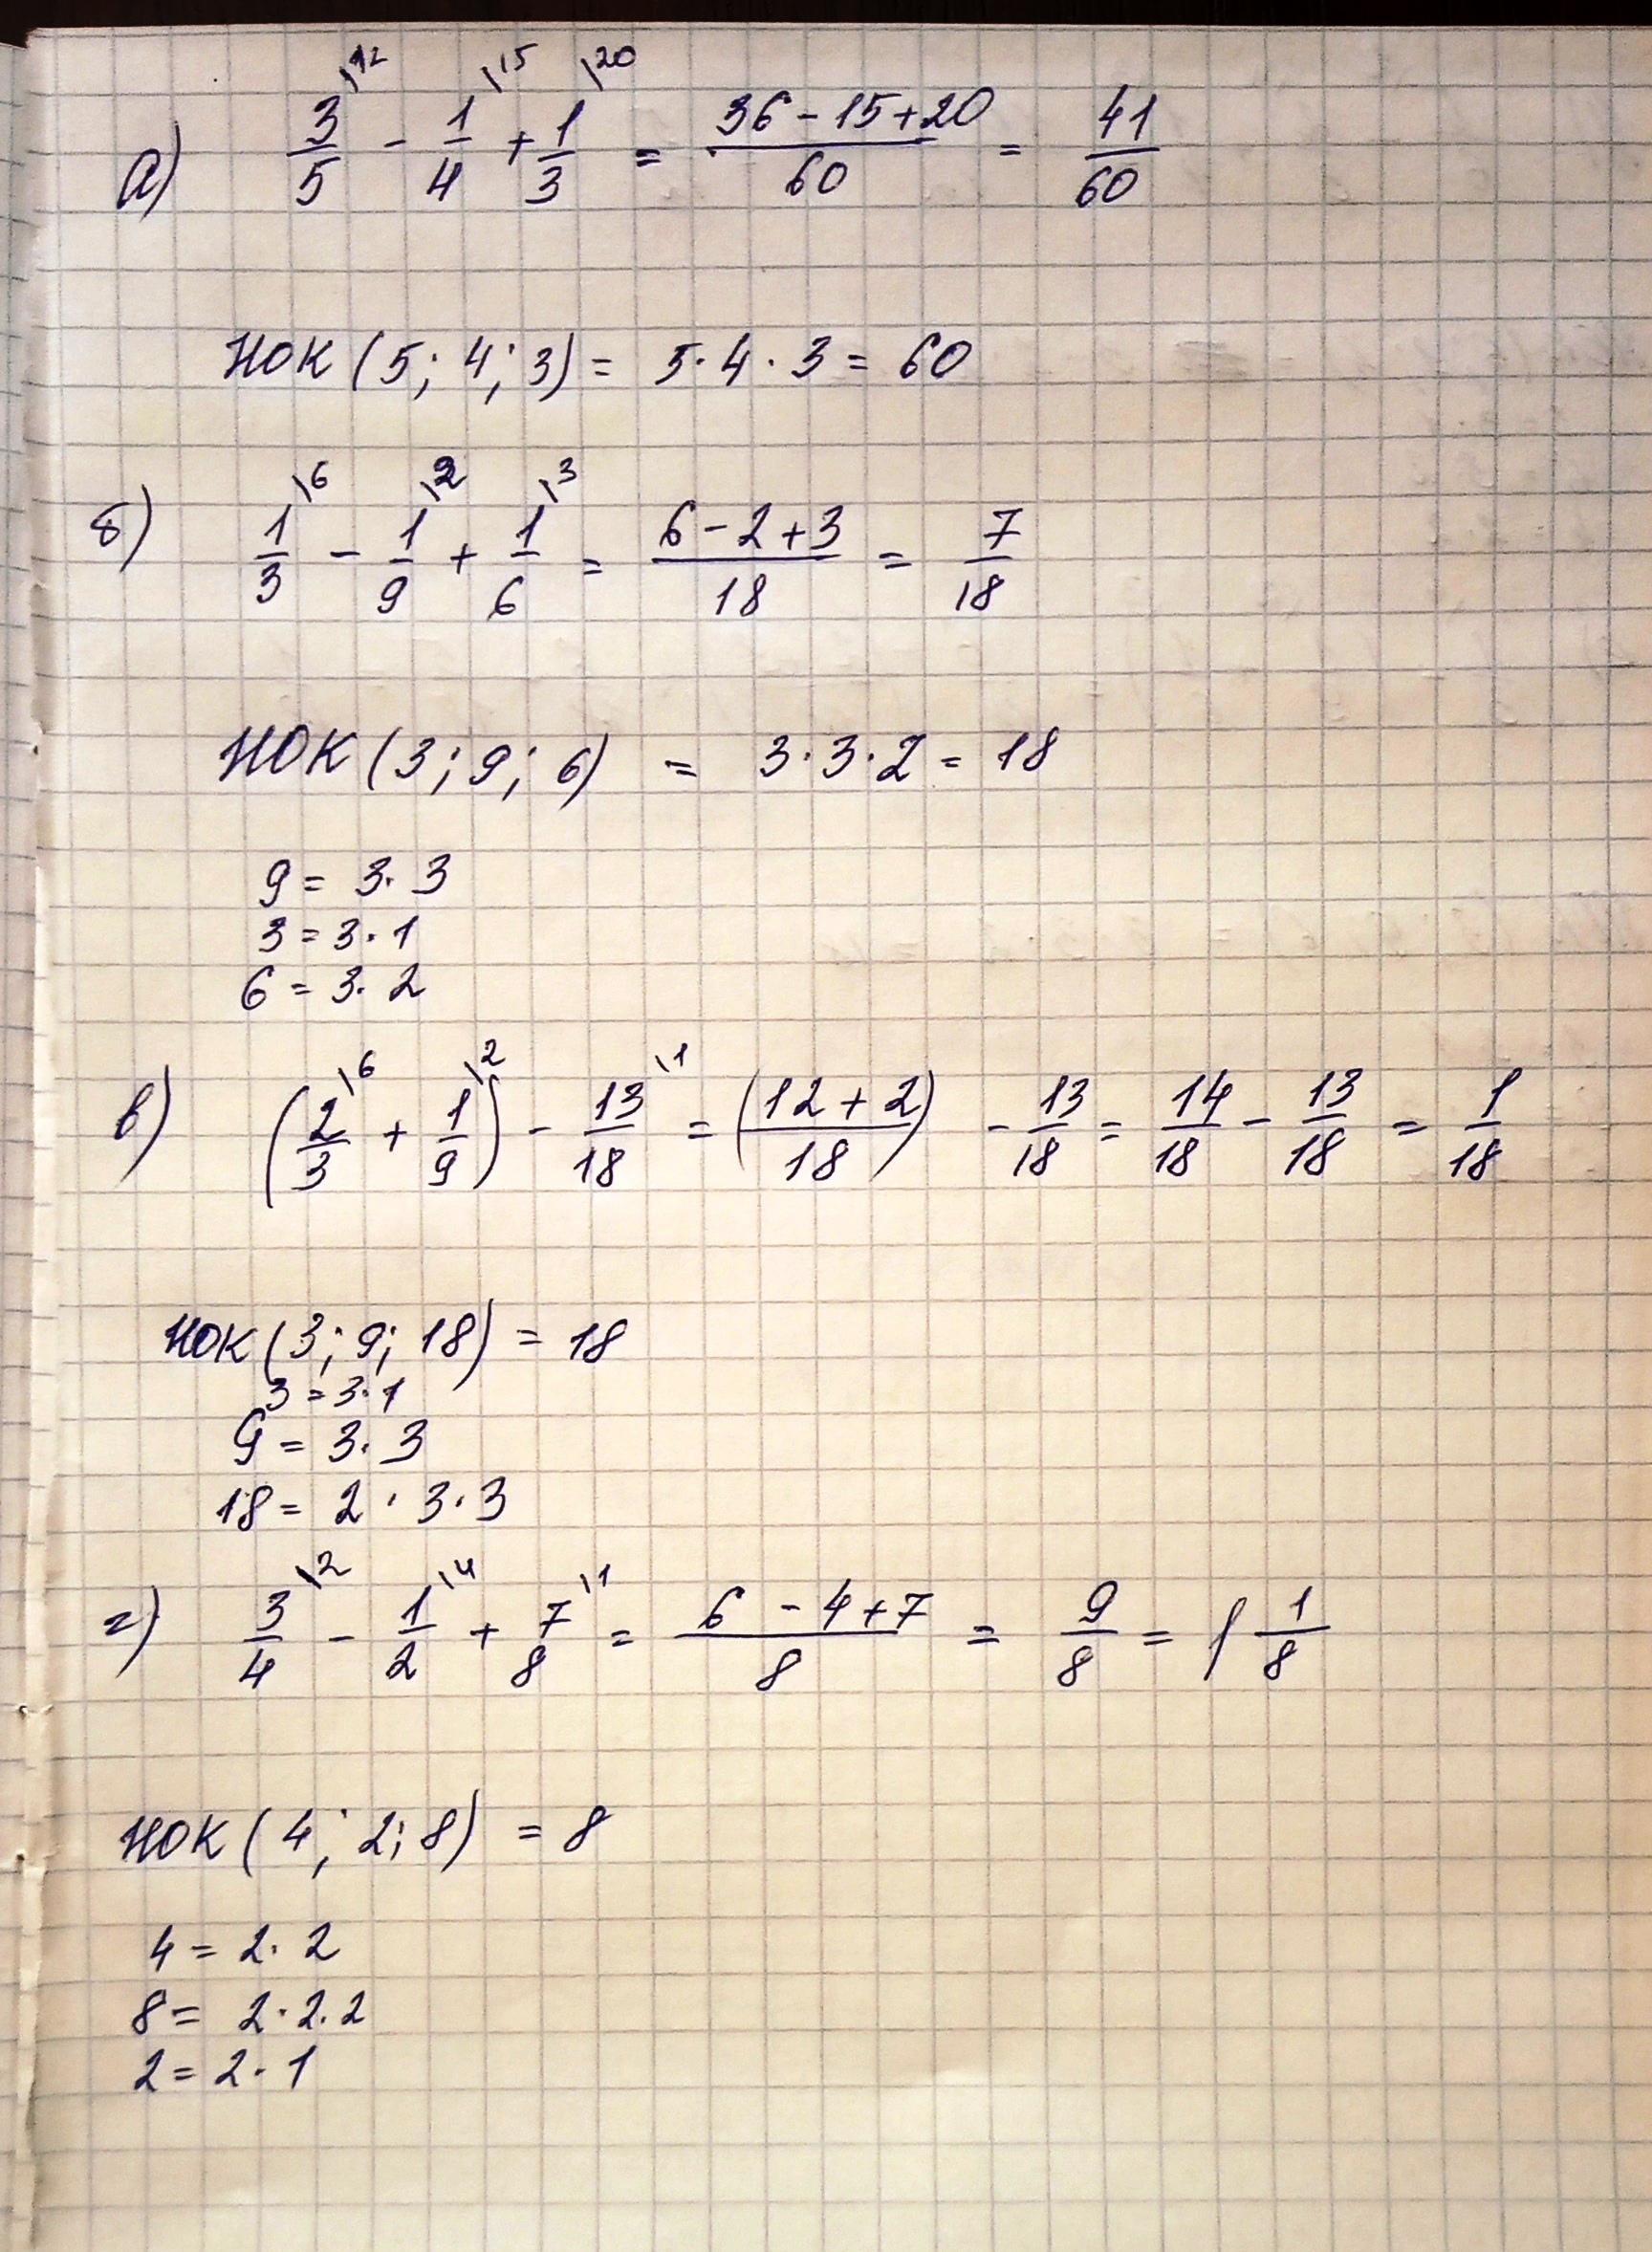 а) 3/5\12 - 1/4\15 + 1/3\20 = (36 - 15 + 20)/60 = 41/60
НОК (5; 4; 3) = 5·4·3 = 60
б) 1/3\6 - 1/9\2 + 1/6\3 = (6 - 2 + 3)/18 = 7/18
НОК (3; 9; 6) = 3·3·2 = 18
9 = 3·3
3 = 3·1
6 = 3·2
в) (2/3\6 + 1/9\2) - 13/18\1 = ((12 + 2)/18) - 13/18 = 14/18 - 13/18 = 1/18
НОК (3; 9; 18) = 18
3 = 3·1
9 = 3·3
18 = 2·3·3
г) 3/4\2 - 1/2\4 + 7/8\1 = (6 - 4 + 7)/8 = 9/8 = 1 1/8
НОК (4; 2; 8) = 8
4 = 2·2
8 = 2·2·2
2 = 2·1